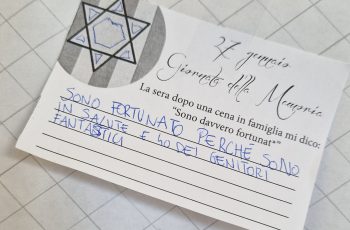 27 gennaio
Giornata della Memoria
La sera dopo una cena in famiglia mi dico:
"Sono davvero fortunat*"
SONO FORTUNATO PERCHÉ SONO
IN SALUTE E HO DEI GENITORI
FANTASTICI